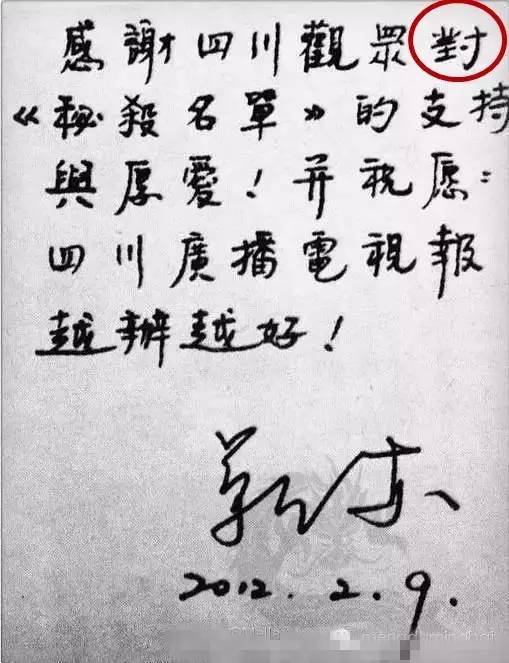 感謝四川觀眾對
《秘殺名單》的支持
與厚愛！并祝愿：
四川廣播電視報
越辦越好！
靳东
2012.2.9.